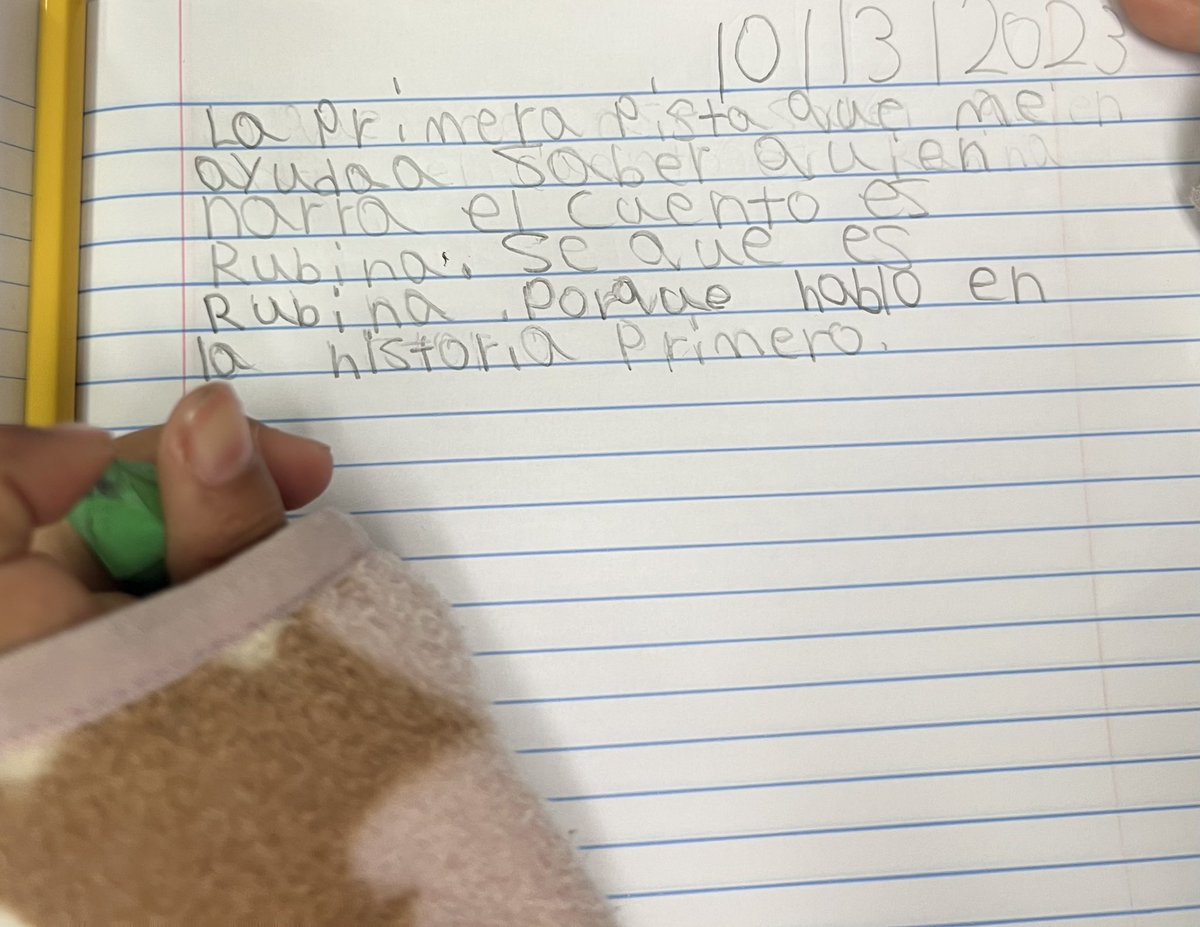 10/13/2023
La primera pista que me
ayuda a saber quien
narra el cuento es
Rubina. Se que es
Rubina. Porque hablo en
la historia primero.